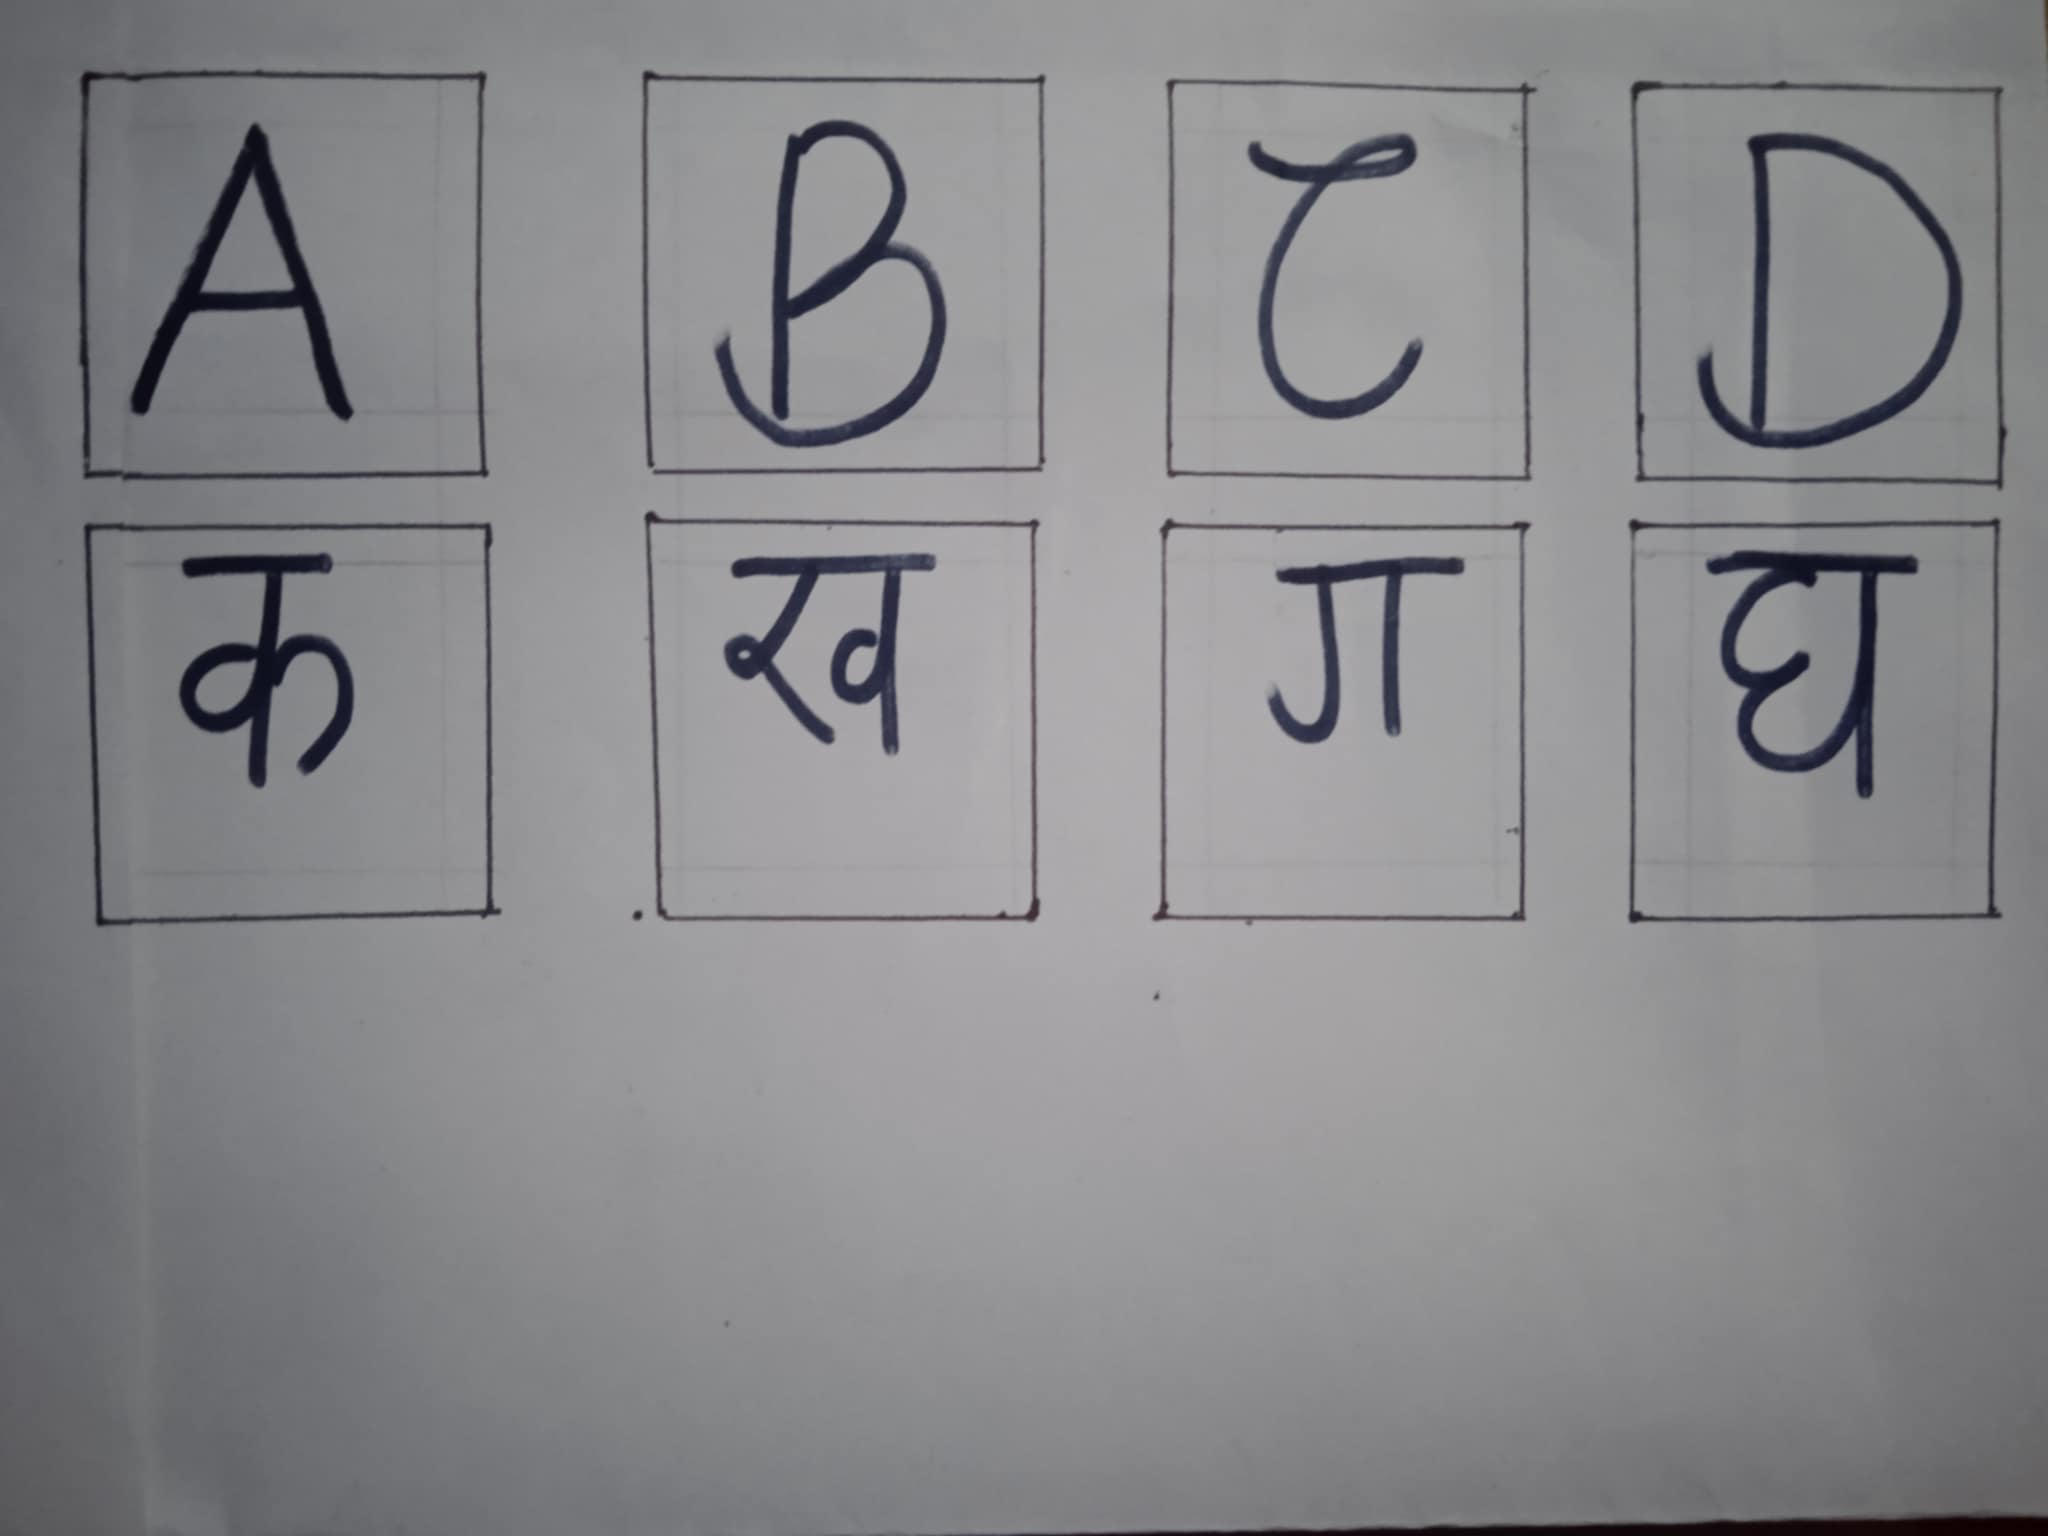 A B C D
क ख ग घ